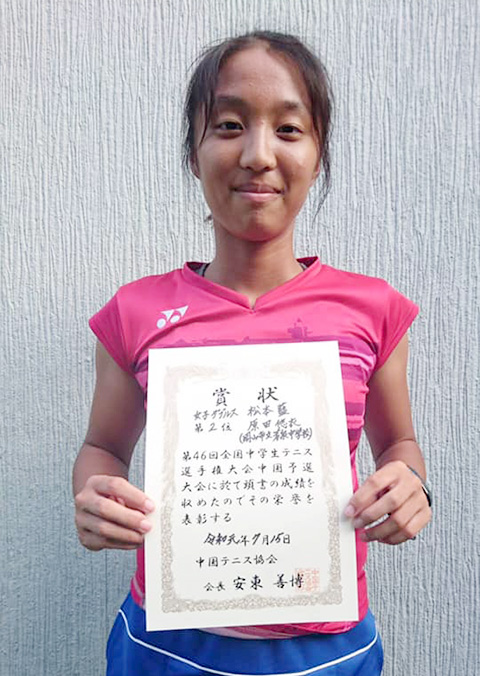 YONEX
賞状
女子ダブルス 松本藍
第2位 原田悠衣
第46回全国中学生テニス
選手権大会中国予選
大会に於て頭書の成績を
収めたのでその栄誉を
表彰する
令和元年7月15日
中国テニス協会
会長 安東善博